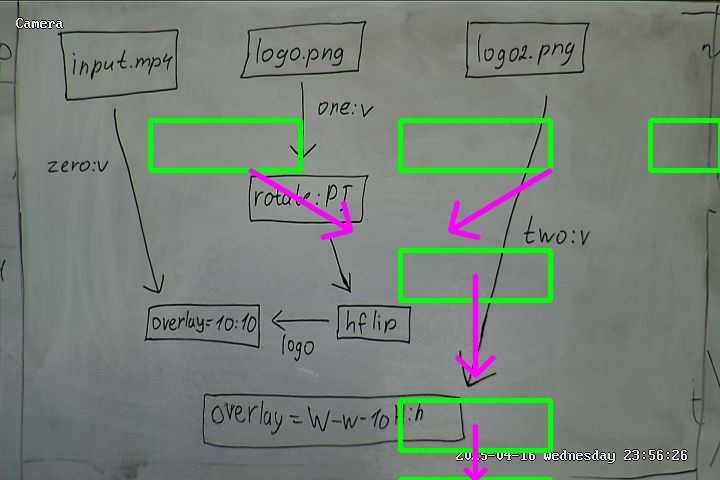 Camera
input.mp4
logo.png
logo2.png
one:v
zero:v
rotate:PI
two:v
overlay=10:10
hflip
logo
overlay=W-w-10
:h
Wednesday 23:56:26